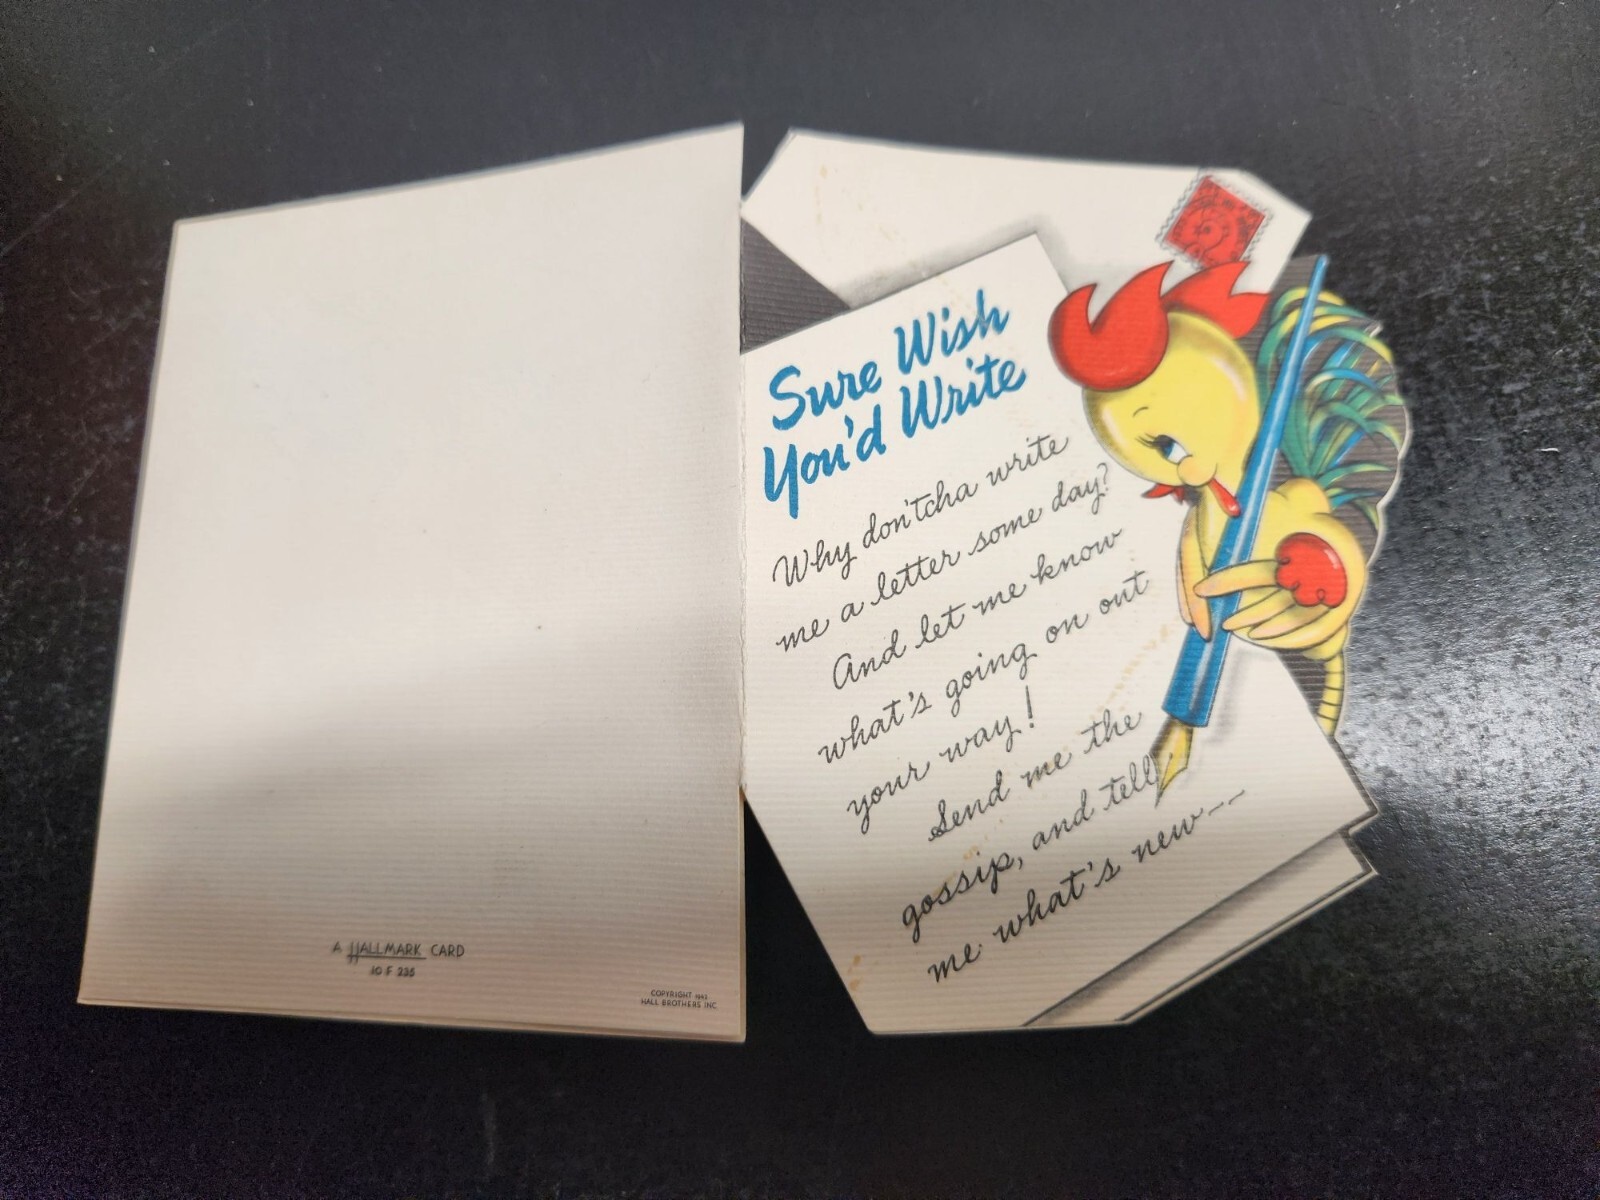 Sure Wish
You'd Write
Why don'tcha write
me a letter some day?
And let me know
what's going on out
your way!
Send me the
gossip, and tell
me what's new--
A HALLMARK CARD
10 F 235
COPYRIGHT 1943
HALL BROTHERS INC.